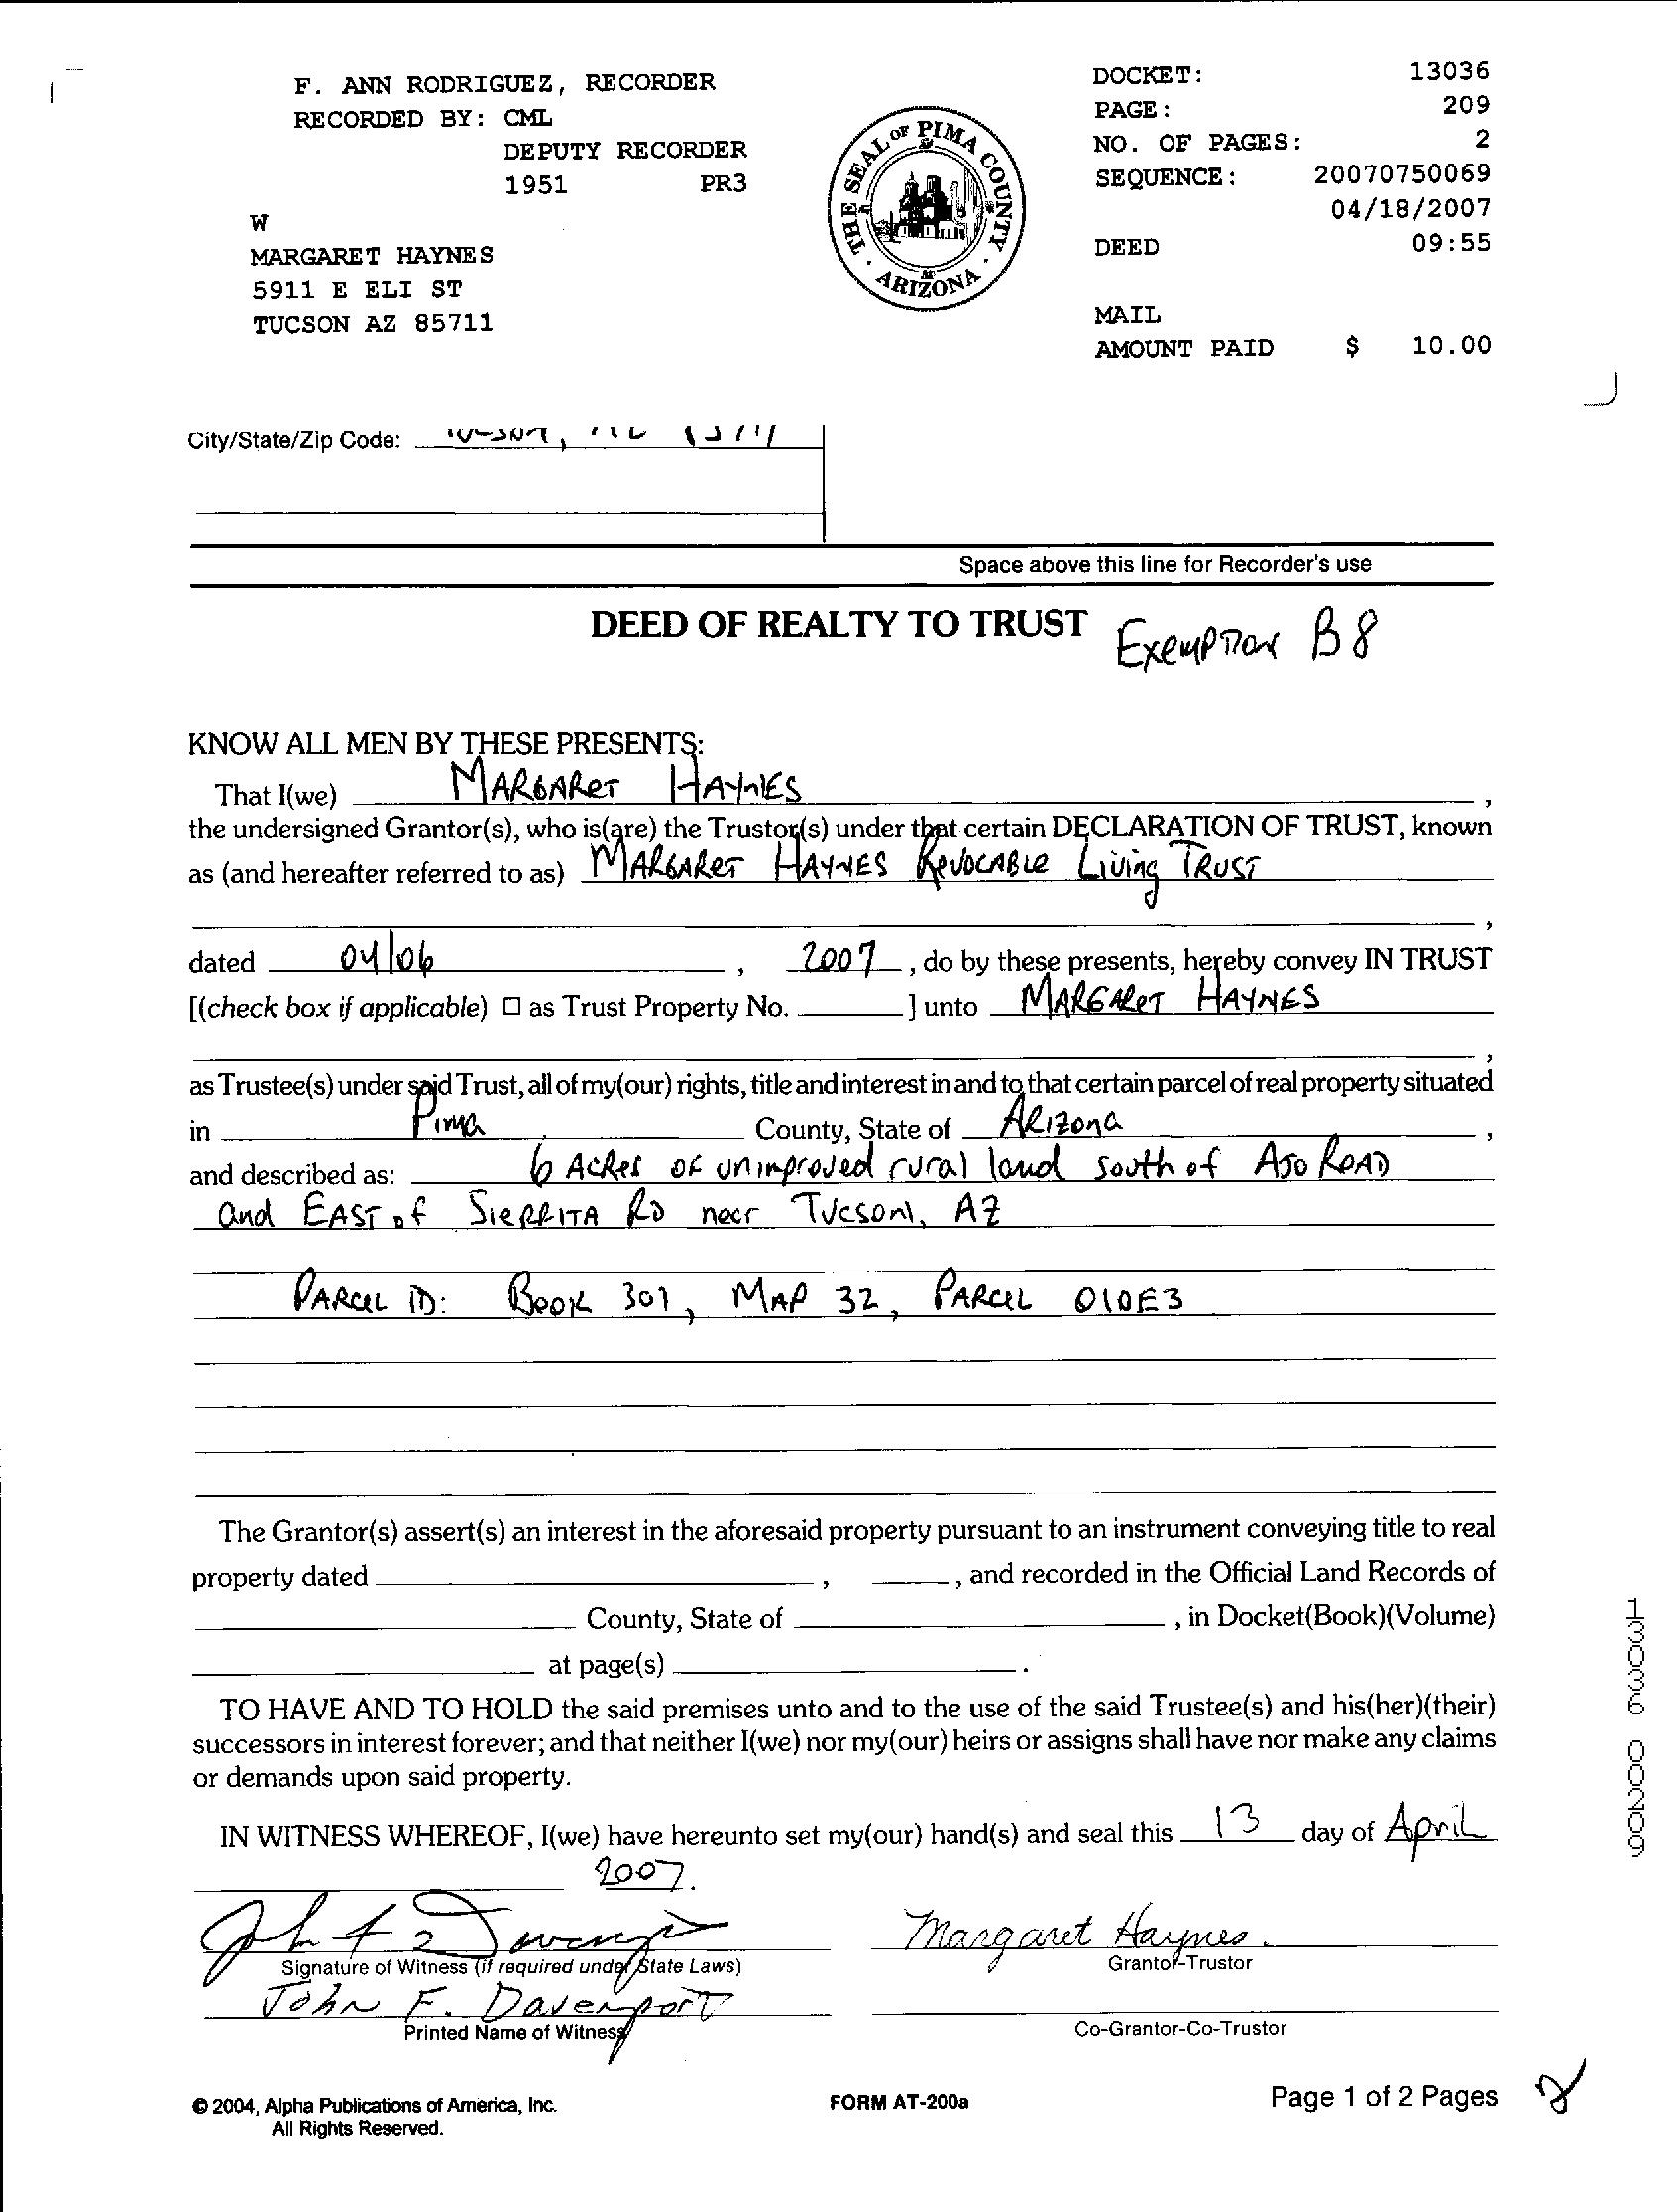 F. ANN RODRIGUEZ, RECORDER
RECORDED BY: CML
DEPUTY RECORDER
1951 PR3
W
MARGARET HAYNES
5911 E ELI ST
TUCSON AZ 85711
THE SEAL OF PIMA COUNTY
ARIZONA
DOCKET: 13036
PAGE: 209
NO. OF PAGES: 2
SEQUENCE: 20070750069
04/18/2007
DEED 09:55
MAIL
AMOUNT PAID $ 10.00
City/State/Zip Code:
Space above this line for Recorder's use
DEED OF REALTY TO TRUST Exemption B8
KNOW ALL MEN BY THESE PRESENTS:
That I(we) MARGARET HAYNES ,
the undersigned Grantor(s), who is(are) the Trustor(s) under that certain DECLARATION OF TRUST, known
as (and hereafter referred to as) MARGARET HAYNES REVOCABLE Living TRUST
,
dated 04/06 , 2007 , do by these presents, hereby convey IN TRUST
[(check box if applicable) □ as Trust Property No. ] unto MARGARET HAYNES
,
as Trustee(s) under said Trust, all of my(our) rights, title and interest in and to that certain parcel of real property situated
in Pima County, State of ARIZONA ,
and described as: 6 Acres of unimproved rural land south of AJO ROAD
and EAST of SIERRITA RD near Tucson, AZ
PARCEL ID: Book 301, MAP 32, PARCEL 010E3
The Grantor(s) assert(s) an interest in the aforesaid property pursuant to an instrument conveying title to real
property dated , , and recorded in the Official Land Records of
County, State of , in Docket(Book)(Volume)
at page(s) .
TO HAVE AND TO HOLD the said premises unto and to the use of the said Trustee(s) and his(her)(their)
successors in interest forever; and that neither I(we) nor my(our) heirs or assigns shall have nor make any claims
or demands upon said property.
IN WITNESS WHEREOF, I(we) have hereunto set my(our) hand(s) and seal this 13 day of April
2007.
Margaret Haynes.
Signature of Witness (if required under State Laws) Grantor-Trustor
John F. Davenport
Printed Name of Witness Co-Grantor-Co-Trustor
© 2004, Alpha Publications of America, Inc. FORM AT-200a Page 1 of 2 Pages 2
All Rights Reserved.
13036 00209